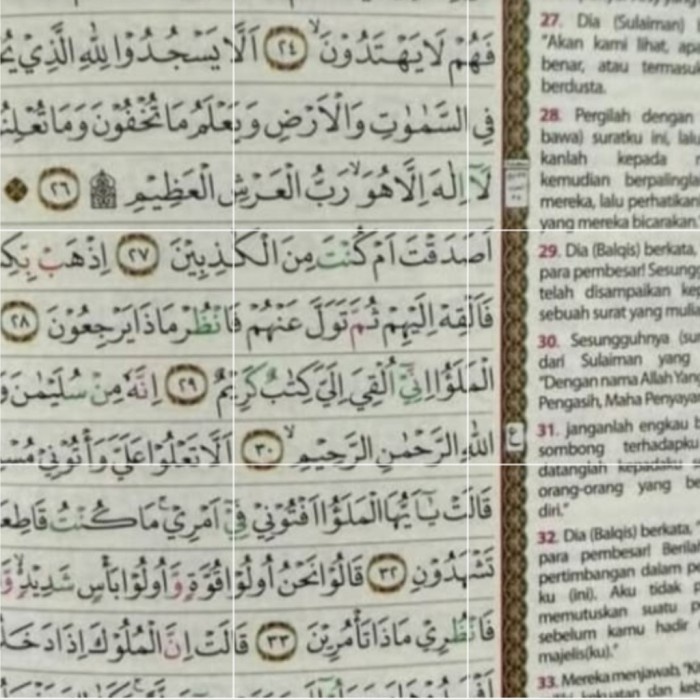 فَهُمْ لَا يَهْتَدُوْنَۙ ﴿٢٤﴾ اَلَّا يَسْجُدُوْا لِلّٰهِ الَّذِيْ
فِى السَّمٰوٰتِ وَالْاَرْضِ وَيَعْلَمُ مَا تُخْفُوْنَ وَمَا
لَآ اِلٰهَ اِلَّا هُوَۙ رَبُّ الْعَرْشِ الْعَظِيْمِ ۩ ﴿٢٦﴾
اَصَدَقْتَ اَمْ كُنْتَ مِنَ الْكٰذِبِيْنَ ﴿٢٧﴾ اِذْهَبْ
فَاَلْقِهْ اِلَيْهِمْ ثُمَّ تَوَلَّ عَنْهُمْ فَانْظُرْ مَاذَا يَرْجِعُوْنَ ﴿٢٨﴾
الْمَلَؤُا اِنِّيْٓ اُلْقِيَ اِلَيَّ كِتٰبٌ كَرِيْمٌ ﴿٢٩﴾ اِنَّهٗ مِنْ سُلَيْمٰنَ
اللّٰهِ الرَّحْمٰنِ الرَّحِيْمِۙ ﴿٣٠﴾ اَلَّا تَعْلُوْا عَلَيَّ وَأْتُوْنِيْ
قَالَتْ يٰٓاَيُّهَا الْمَلَؤُا اَفْتُوْنِيْ فِيْٓ اَمْرِيْۚ مَا كُنْتُ
تَشْهَدُوْنِ ﴿٣٢﴾ قَالُوْا نَحْنُ اُولُوْا قُوَّةٍ وَّاُولُوْا بَأْسٍ شَدِيْدٍ
فَانْظُرِيْ مَاذَا تَأْمُرِيْنَ ﴿٣٣﴾ قَالَتْ اِنَّ الْمُلُوْكَ اِذَا
27. Dia (Sulaiman)
"Akan kami lihat,
benar, atau
berdusta.
28. Pergilah dengan
bawa) suratku ini,
kanlah kepada
kemudian
mereka, lalu
yang mereka bicarakan
29. Dia (Balqis) berkata,
para pembesar!
telah disampaikan
sebuah surat yang
30. Sesungguhnya
dari Sulaiman yang
"Dengan nama Allah
Pengasih, Maha
31. janganlah engkau
sombong
datanglah kepadaku
orang-orang yang
diri."
32. Dia (Balqis) berkata,
para pembesar!
pertimbangan dalam
ku (ini). Aku tidak
memutuskan suatu
sebelum kamu hadir
majelis(ku)."
33. Mereka menjawab,